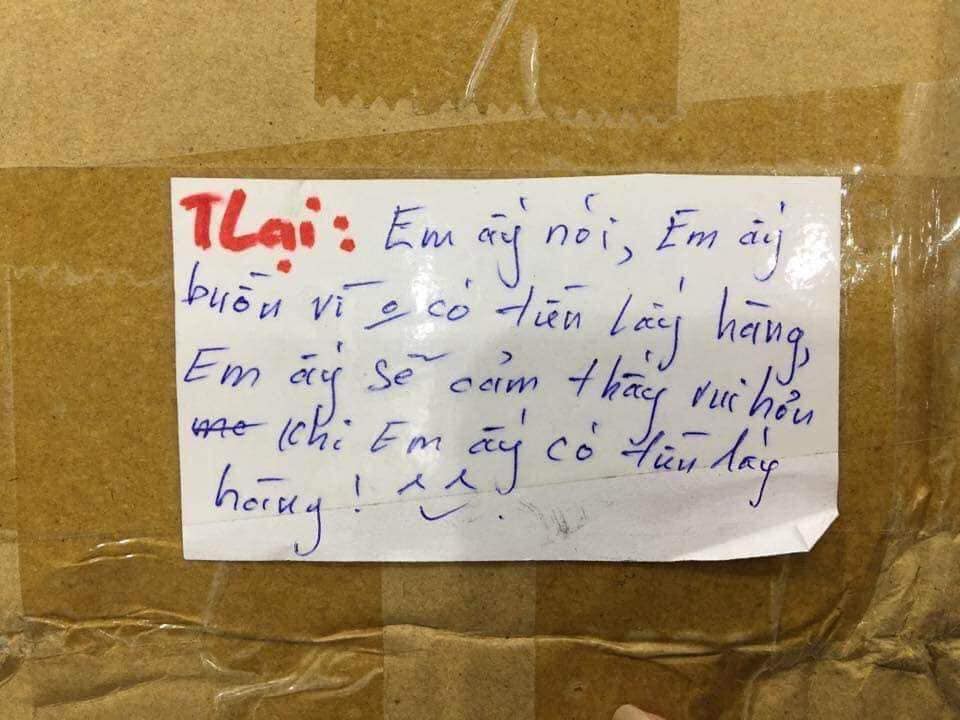 TLại: Em ấy nói, Em ấy
buồn vì o có tiền lấy hàng,
Em ấy sẽ cảm thấy vui hơn
me khi Em ấy có tiền lấy
hàng! ^ ‿ ^.